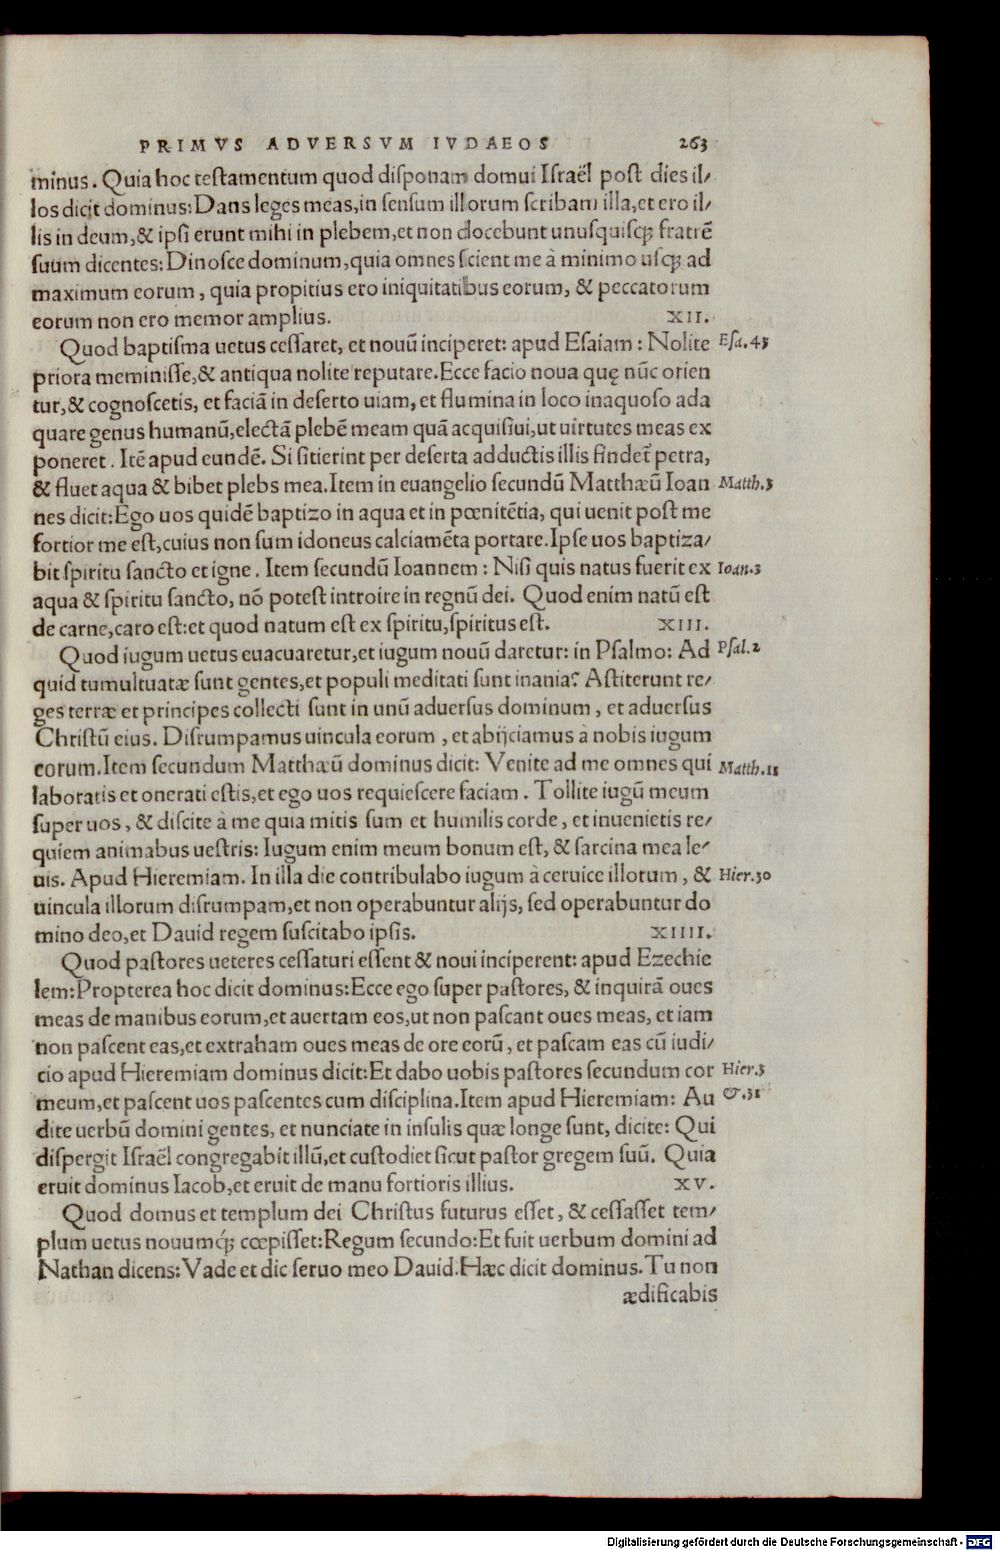 PRIMVS ADVERSVM IVDAEOS 263
minus. Quia hoc testamentum quod disponam domui Israël post dies il/
los dicit dominus: Dans leges meas, in sensum illorum scribam illa, et ero il/
lis in deum, & ipsi erunt mihi in plebem, et non docebunt unusquisq; fratrē
suum dicentes: Dinosce dominum, quia omnes scient me à minimo usq; ad
maximum eorum, quia propitius ero iniquitatibus eorum, & peccatorum
eorum non ero memor amplius. XII.
Quod baptisma uetus cessaret, et nouū inciperet: apud Esaiam: Nolite Esa.43
priora meminisse, & antiqua nolite reputare. Ecce facio noua quę nūc orien
tur, & cognoscetis, et faciā in deserto uiam, et flumina in loco inaquoso ada
quare genus humanū, electā plebē meam quā acquisiui, ut uirtutes meas ex
poneret. Itē apud eundē. Si sitierint per deserta adductis illis findet̄ petra,
& fluet aqua & bibet plebs mea. Item in euangelio secundū Matthæū Ioan Matth.3
nes dicit: Ego uos quidē baptizo in aqua et in pœnitētia, qui uenit post me
fortior me est, cuius non sum idoneus calciamēta portare. Ipse uos baptiza/
bit spiritu sancto et igne. Item secundū Ioannem: Nisi quis natus fuerit ex Ioan.3
aqua & spiritu sancto, nō potest introire in regnū dei. Quod enim natū est
de carne, caro est: et quod natum est ex spiritu, spiritus est. XIII.
Quod iugum uetus euacuaretur, et iugum nouū daretur: in Psalmo: Ad Psal.2
quid tumultuatæ sunt gentes, et populi meditati sunt inania? Astiterunt re/
ges terræ et principes collecti sunt in unū aduersus dominum, et aduersus
Christū eius. Disrumpamus uincula eorum, et abijciamus à nobis iugum
eorum. Item secundum Matthæū dominus dicit: Venite ad me omnes qui Matth.11
laboratis et onerati estis, et ego uos requiescere faciam. Tollite iugū meum
super uos, & discite à me quia mitis sum et humilis corde, et inuenietis re/
quiem animabus uestris: Iugum enim meum bonum est, & sarcina mea le/
uis. Apud Hieremiam. In illa die contribulabo iugum à ceruice illorum, & Hier.30
uincula illorum disrumpam, et non operabuntur alijs, sed operabuntur do
mino deo, et Dauid regem suscitabo ipsis. XIIII.
Quod pastores ueteres cessaturi essent & noui inciperent: apud Ezechie
lem: Propterea hoc dicit dominus: Ecce ego super pastores, & inquirā oues
meas de manibus eorum, et auertam eos, ut non pascant oues meas, et iam
non pascent eas, et extraham oues meas de ore eorū, et pascam eas cū iudi/
cio apud Hieremiam dominus dicit: Et dabo uobis pastores secundum cor Hier.3
meum, et pascent uos pascentes cum disciplina. Item apud Hieremiam: Au &.31
dite uerbū domini gentes, et nunciate in insulis quæ longe sunt, dicite: Qui
dispergit Israēl congregabit illū, et custodiet sicut pastor gregem suū. Quia
eruit dominus Iacob, et eruit de manu fortioris illius. XV.
Quod domus et templum dei Christus futurus esset, & cessasset tem/
plum uetus nouumq́; cœpisset: Regum secundo: Et fuit uerbum domini ad
Nathan dicens: Vade et dic seruo meo Dauid. Hæc dicit dominus. Tu non
ædificabis
Digitalisierung gefördert durch die Deutsche Forschungsgemeinschaft - DFG